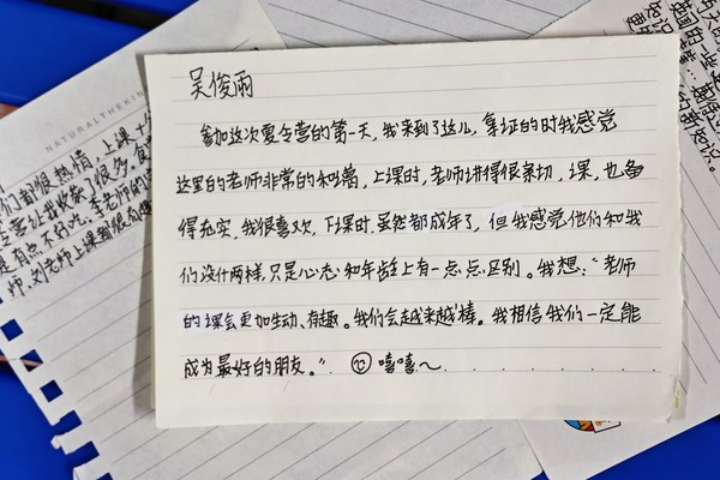 吴俊雨
参加这次夏令营的第一天，我来到了这儿，集证的时我感觉
这里的老师非常的和蔼，上课时，老师讲得很亲切，课，也备
得充实，我很喜欢，下课时，虽然都成年了，但我感觉他们和我
们没什两样，只是心态和年龄上有一点点区别。我想：“老师
的课会更加生动、有趣。我们会越来越棒。我相信我们一定能
成为最好的朋友。” 嘻嘻～
NATURALTHEKIN
们都很热情，上课十
营让我收获了很多。食
是有点不好吃。李老师的
师、刘老师上课都很有趣
新知识。